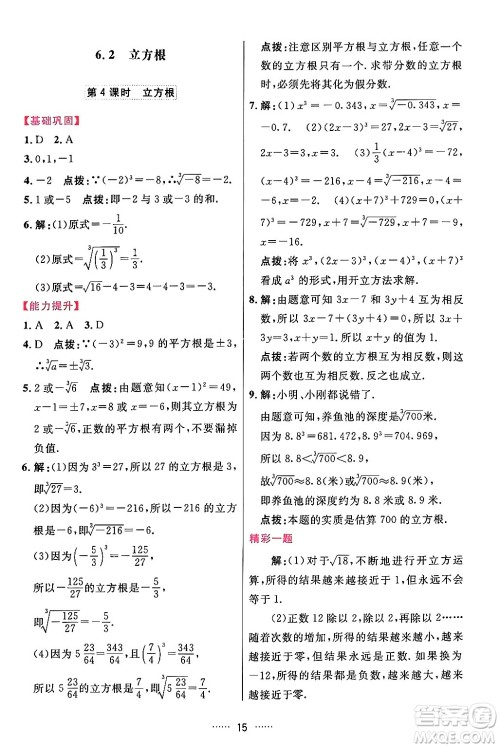 6.2 立方根
第4课时 立方根
【基础巩固】
1. D 2. A
3. 0,1,-1
4. -2 点拨:∵(-2)³=-8,∴∛-8=-2.
5. 1或-5 点拨:即-2与3或-3的和.
6. 解:(1)原式=-1/10.
(2)原式=∛(1/3)³=1/3.
(3)原式=∛-16-4-44=∛-64=-4.
【能力提升】
1. A 2. A 3. D
4. ∛±3 点拨:∵81=9,9的平方根是±3,
∴a=±3.∴∛a=∛±3.
5. 2或-∛6 点拨:由题意可知(x-1)²=49,
x-1=±7.∴x=8或x=-6.∴x的立方根是
2或-∛6.正数的平方根有两个,不要漏掉
负值.
6. 解:(1)因为3³=27,所以27的立方根是3,
即∛27=3.
(2)因为(-3)³=-27,所以-27的立方根
是-3,即∛-27=-3.
(3)因为(-5/3)³=-125/27,所以-125/27的立方
根是-5/3,即∛-125/27=-5/3.
(4)因为5 23/64=343/64,且(7/4)³=343/64,所以
5 23/64的立方根是7/4,即∛5 23/64=7/4.
点拨:注意区别平方根与立方根.一个
数的立方根只有一个.求带分数的立方根
时,必须先将其化为假分数.
7. 解:(1)x³=-0.343,x=∛-0.343,x=
-0.7. (2)x³=27/8,x=∛27/8,x=3/2. (3)
2x-3=∛-729,2x-3=-9,2x=-6,x=
-3. (4)(x-4)³=-216,x-4=∛-216,x-
4=-6,x=-2. (5)x³+9³=0,x³=-9³,
x³=-729,x=∛-729,x=-9.
点拨:将x³,(2x-3)³,(x-4)³分别
看成a³的形式,用开立方法求解.
8. 解:由题意可知3x-7和3y+4互为相反
数,所以3x-7+(3y+4)=0,所以3x-7+
3y+4=0,所以3(x+y)=3,所以x+y=1.
点拨:若两个数的立方根互为相反数,
则这两个数也互为相反数.利用相反数列
出等式,然后求出x+y的值.
9. 解:小明、小刚都说错了.
由题意可知,养鱼池的深度是∛700米.
因为8.8³=681.472,9³=729,
所以8.8<∛700<9.所以∛700≈9(米).
即养鱼池的深度约为9米.
点拨:本题的实质是估算700的立方根.
精彩一题
解:(1)对于∛18,不断地进行开立方运
算,所得的结果越来越接近于1.
(2)正数12除以2,再除以2,再除以2……
随着次数的增加,所得的结果越来越小,越来
越接近于零.如果用负数-12来代替正数12,
则随着次数的增加,所得的结果越来越大,越
来越接近于零.
15